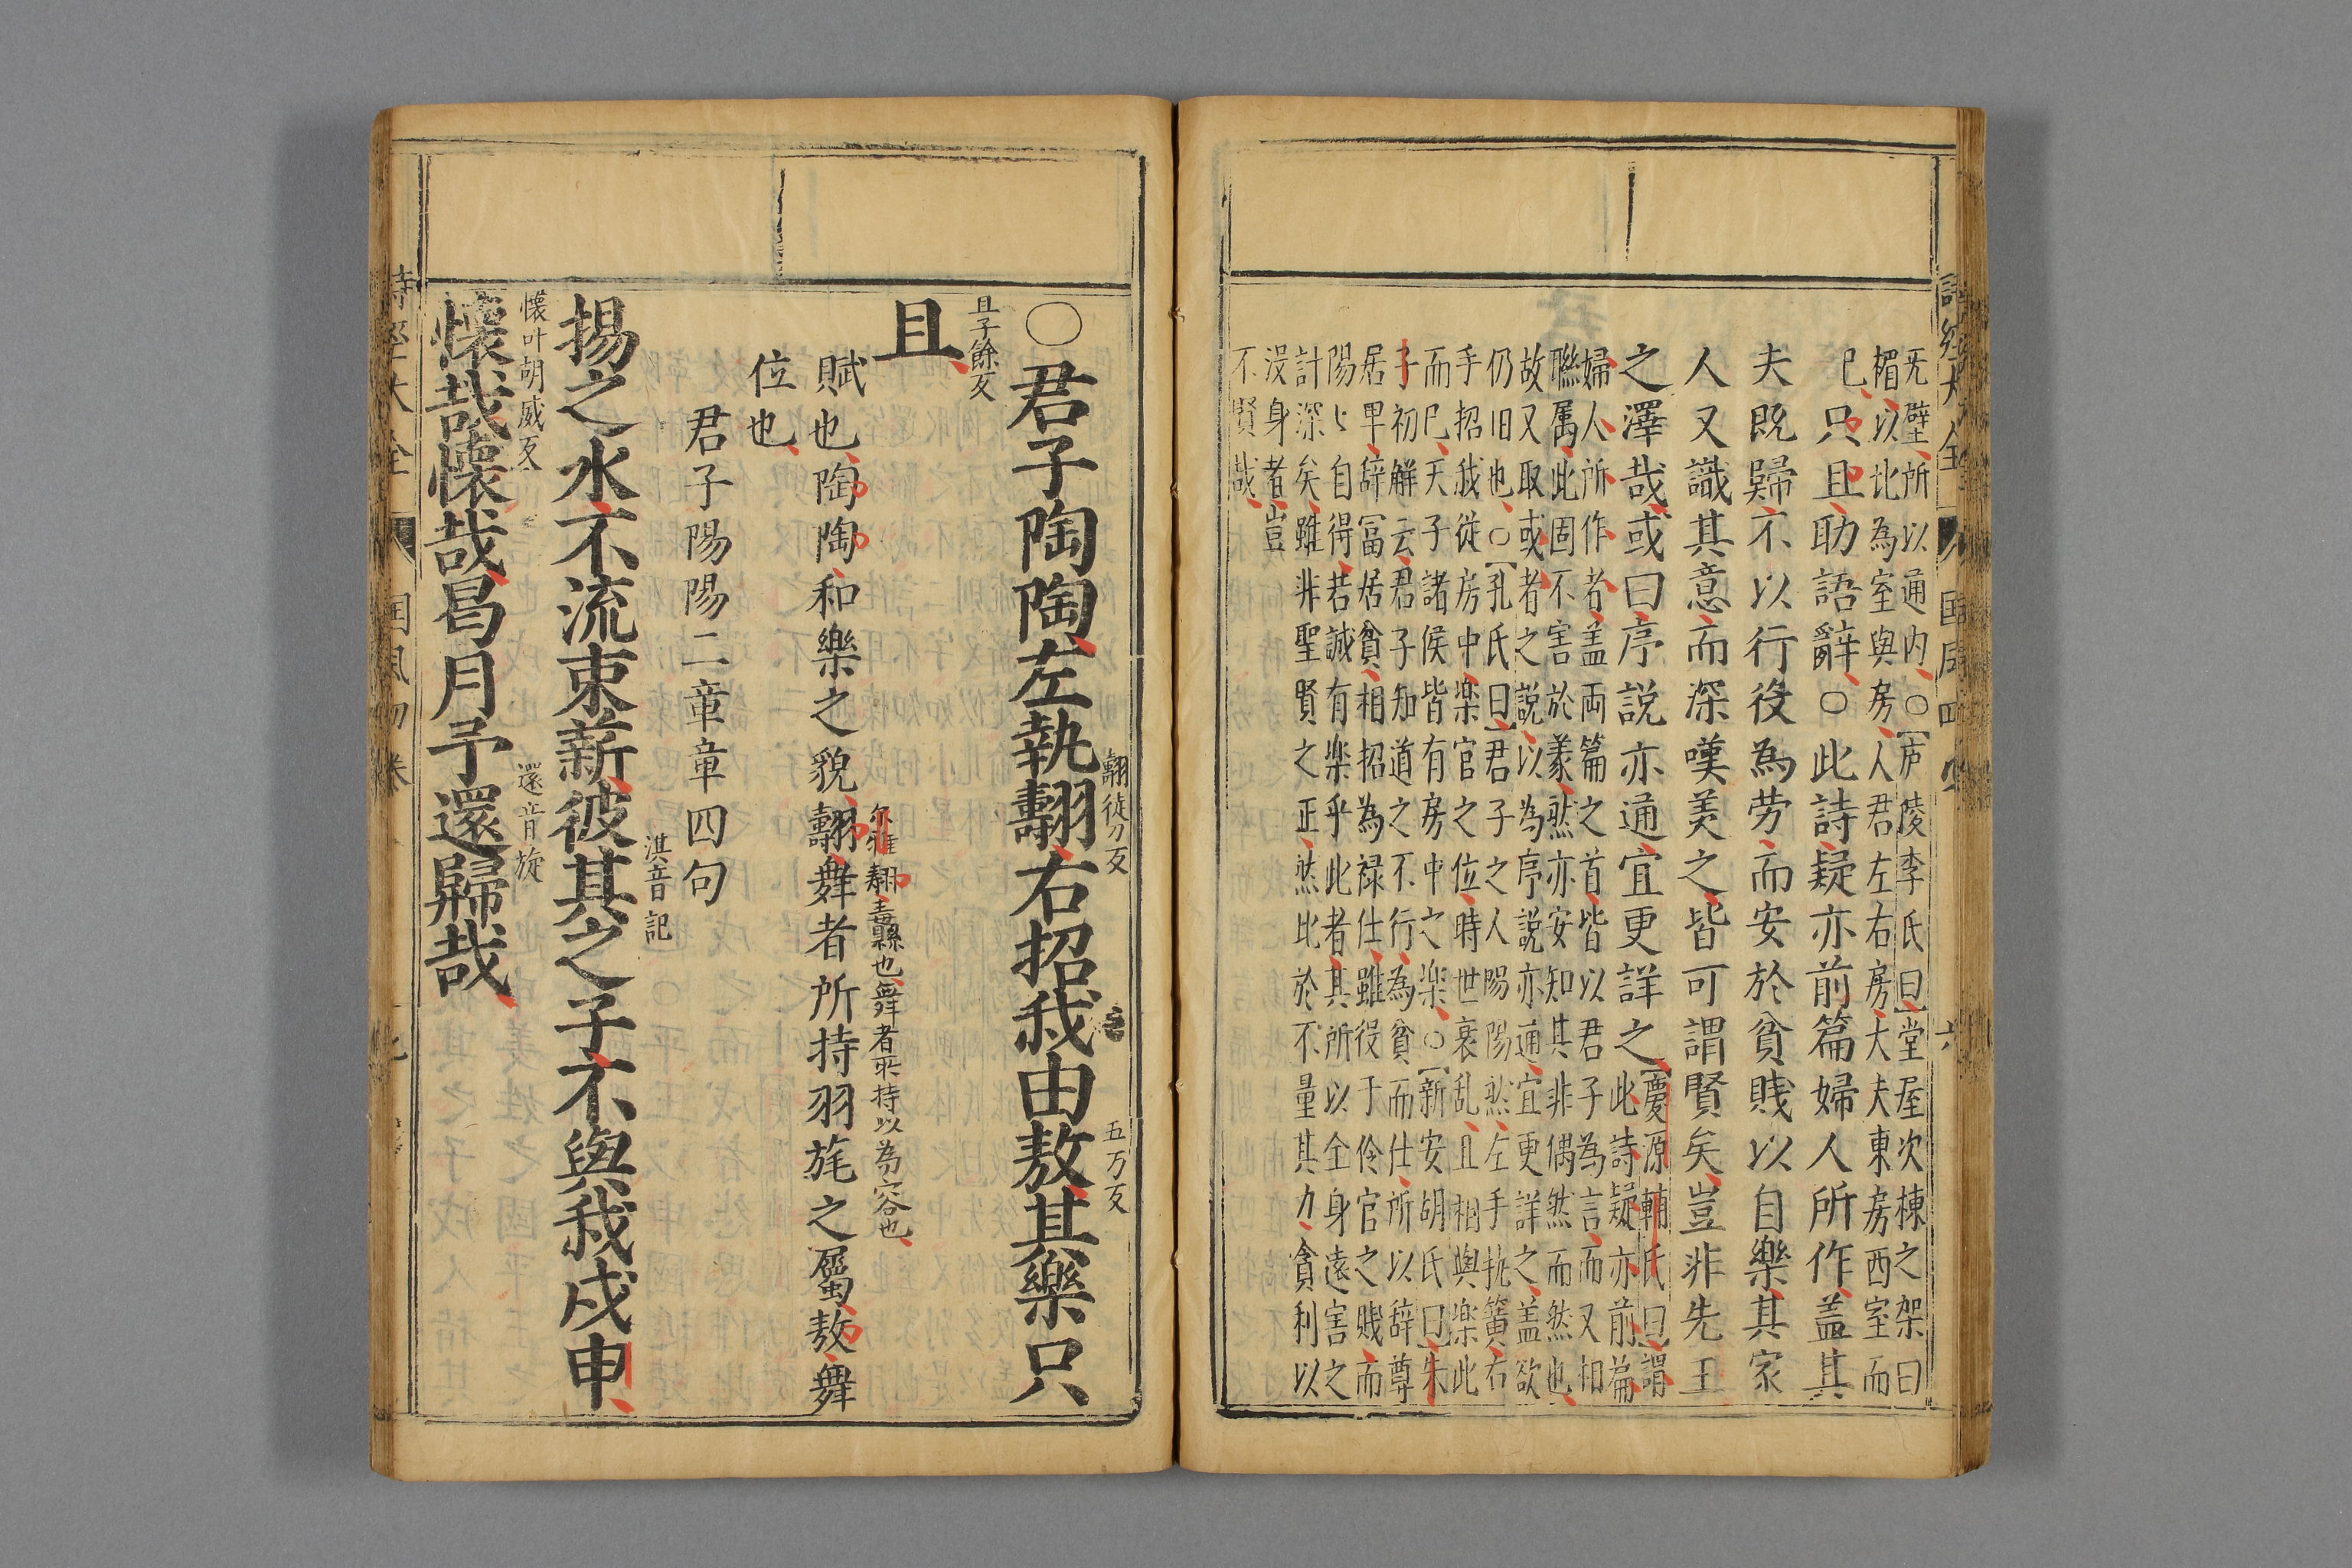 无壁所以通内○庐陵李氏曰堂屋次棟之架曰
楣以北為室與房人君左右房大夫東房西室而
已只且助語辭○此詩疑亦前篇婦人所作盖其
夫既歸不以行役為劳而安於貧賎以自樂其家
人又識其意而深嘆美之皆可謂賢矣豈非先王
之澤哉或曰序説亦通宜更詳之慶源輔氏曰謂
此詩疑亦前篇
婦人所作者盖两篇之首皆以君子為言而又相
聮属此固不害於義然亦安知其非偶然而然也
故又取或者之説以為序説亦通宜更詳之盖欲
仍旧也○孔氏曰君子之人陽陽然左手執簧右
手招我従房中楽官之位時世衰乱且相與楽此
而已天子諸侯皆有房中之楽○新安胡氏曰朱
子初解云君子知道之不行為貧而仕所以辞尊
居卑辞冨居貧相招為禄仕雖役于伶官之賎而
陽陽自得若誠有楽乎此者其所以全身遠害之
計深矣雖非聖賢之正然比於不量其力貪利以
没身者豈
不賢哉
○君子陶陶左執翿右招我由敖其樂只
翿徒刀反
五刀反
且
且子餘反
賦也陶陶和樂之貌翿舞者所持羽旄之屬敖舞
尔雅翿纛也舞者所持以為容也
位也
君子陽陽二章章四句
揚之水不流束薪彼其之子不與我戍申
淇音記
懷哉懷哉曷月予還歸哉
懷叶胡威反
還音旋